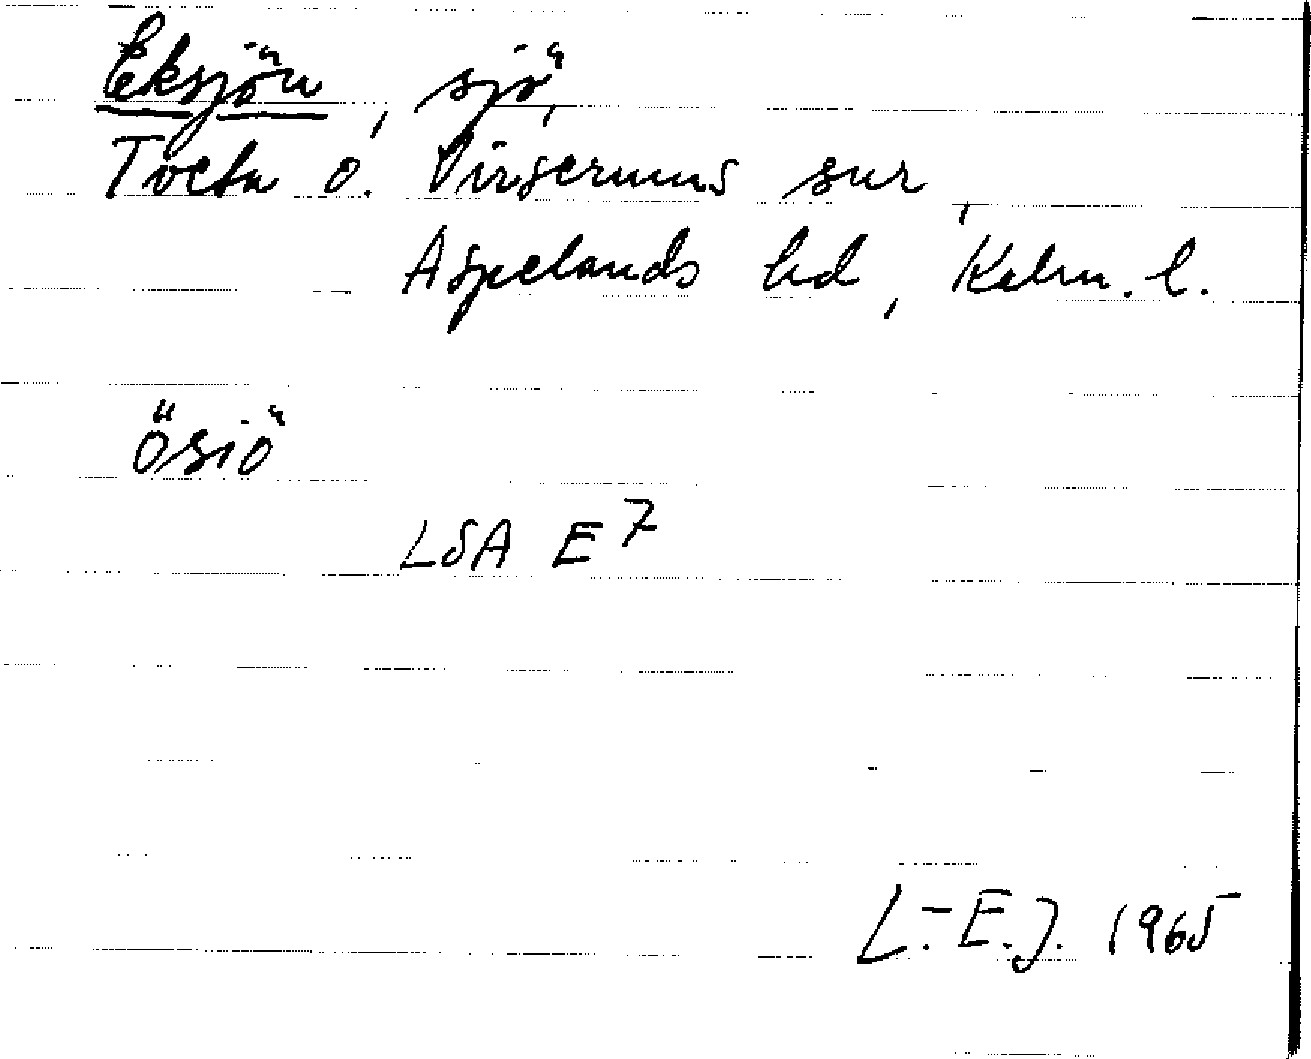 Eksjön, sjö,
Tveta o. Virserums snr,
Aspelands hd, Kalm. l.
ösiö
LSA E 7
L.-E. J. 1965